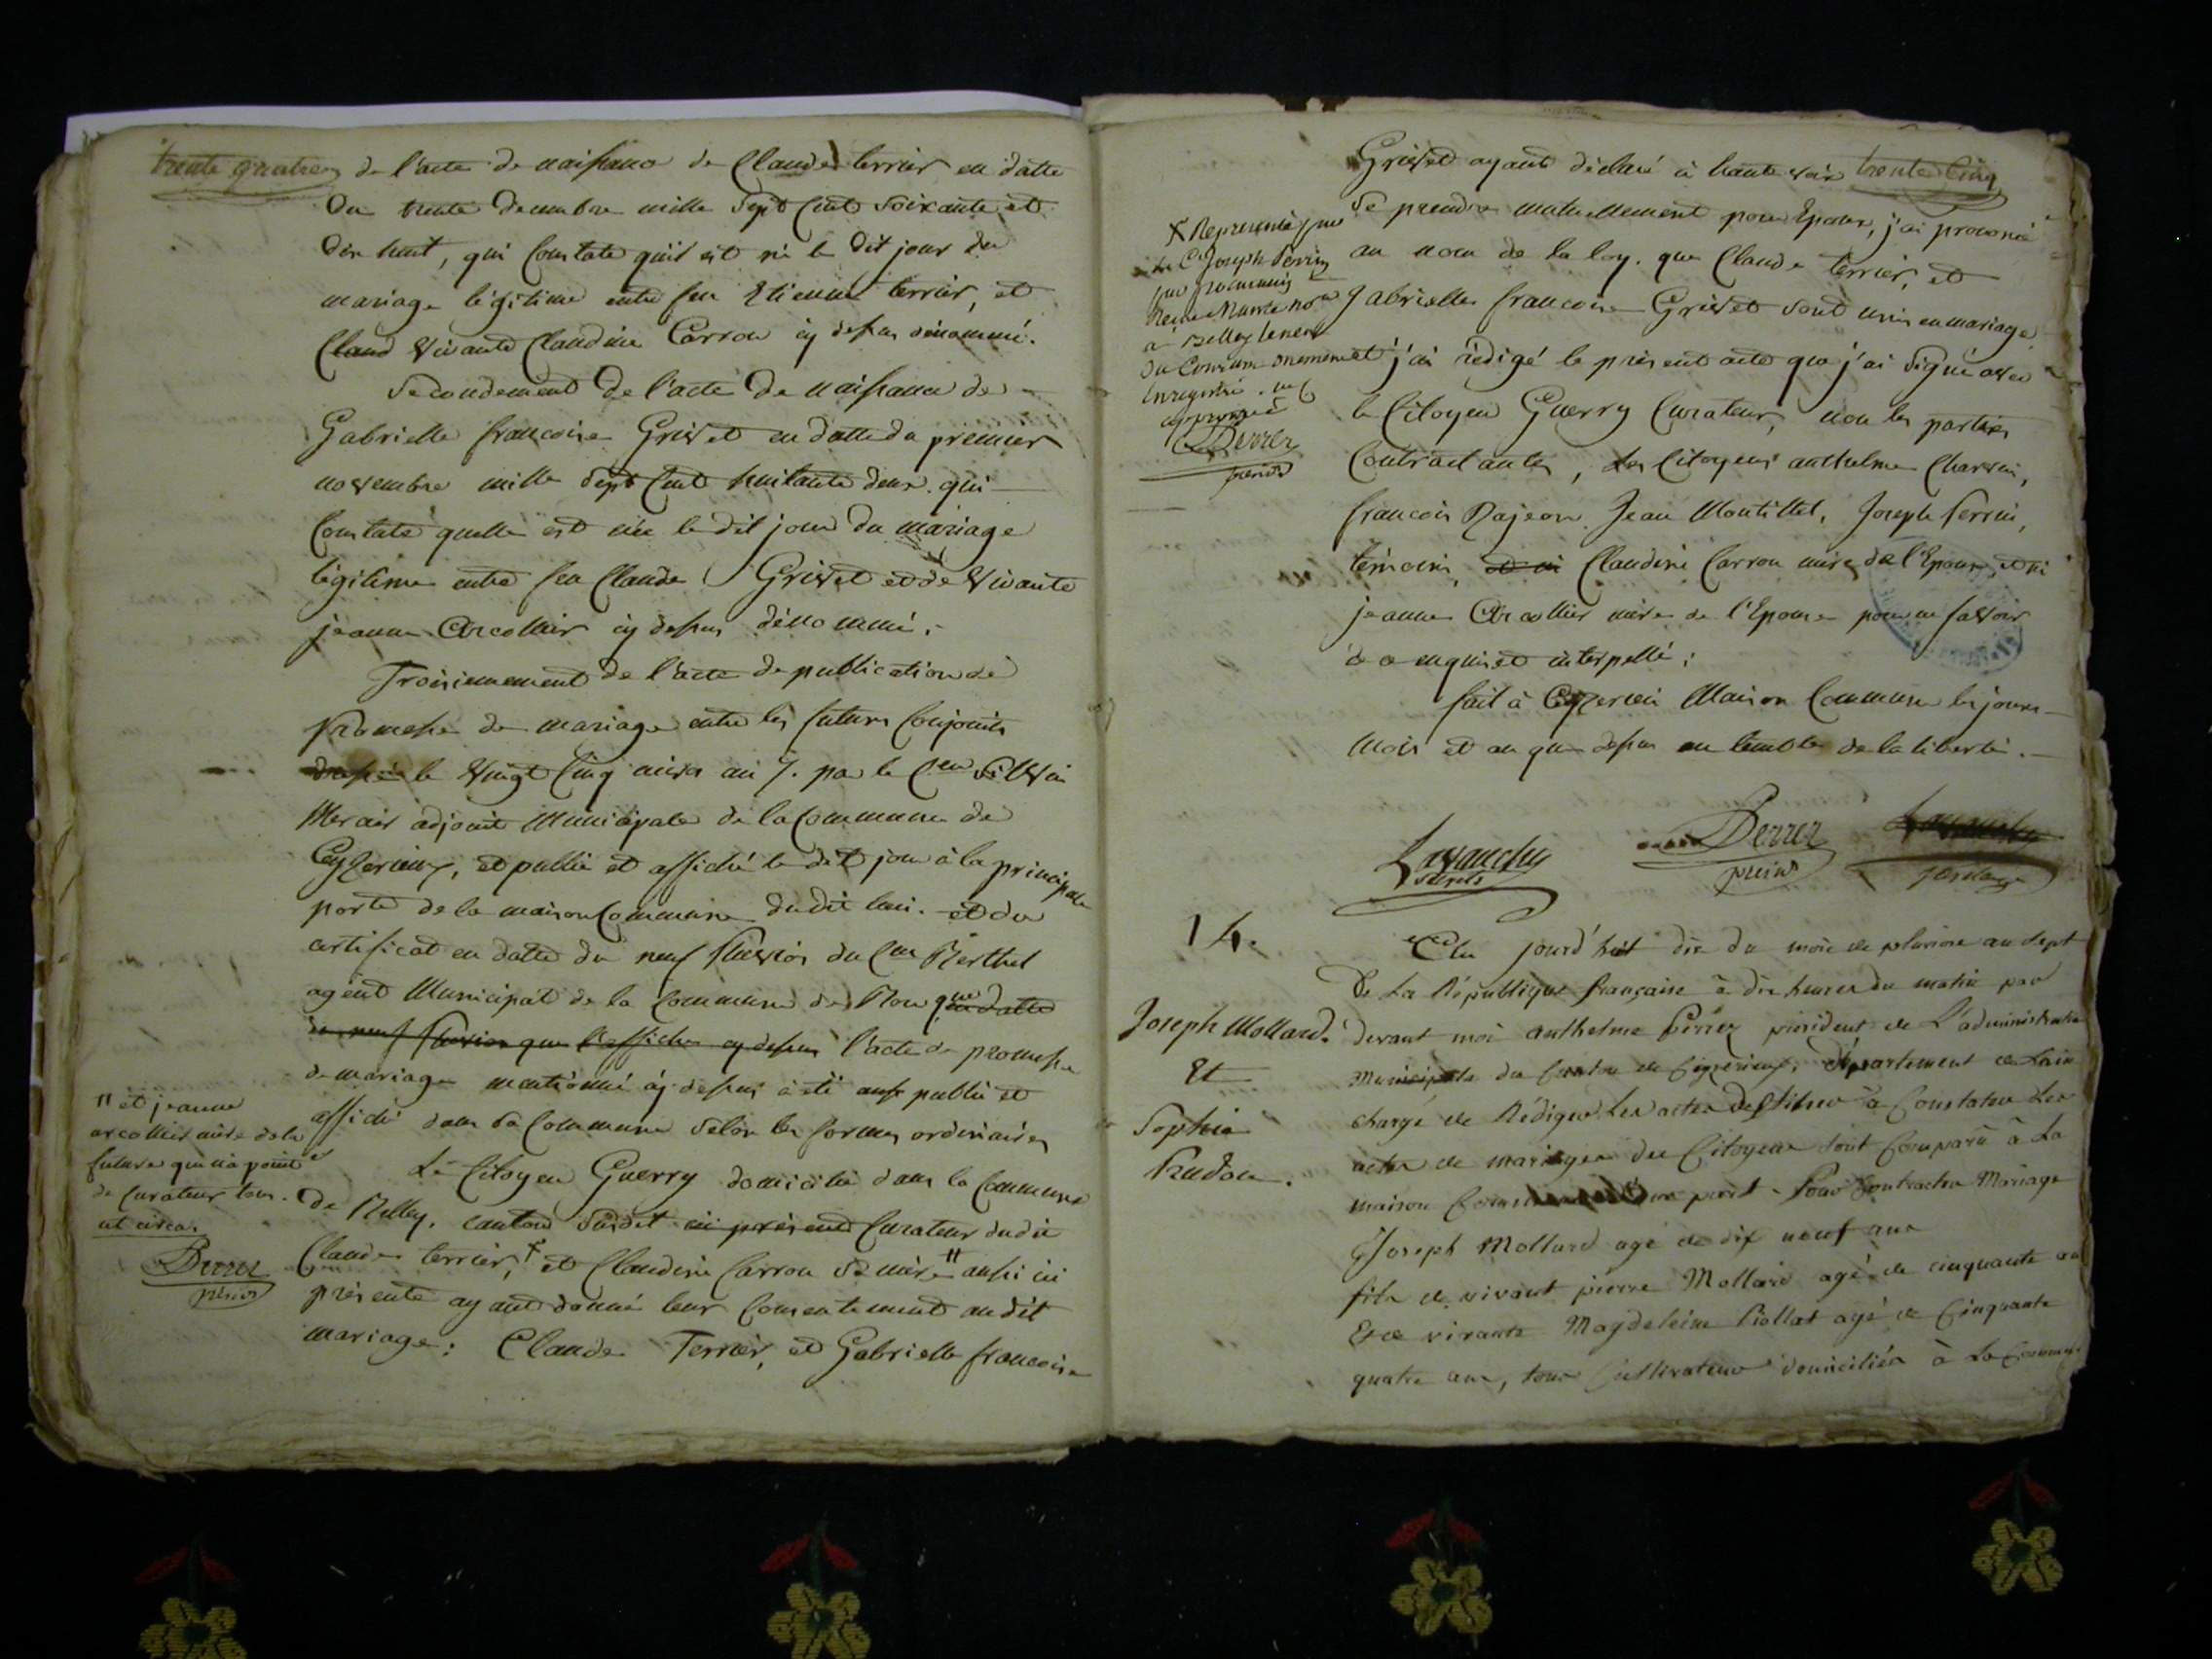 trente quatre de l'acte de naissance de Claude terrier en datte
du trente decembre mille Sept Cent Soixante et
dix huit, qui Constate quil est né le dit jour du
mariage légitime entre feu Etienne terrier, et
Claud vivante Claudine Carron cy dessus dénommé.
Secondement de l'acte de naissance de
Gabrielle francoise Grivet en datte du premier
novembre mille Sept Cent huitante deux. qui
Constate quelle est née le dit jour du mariage
légitime entre feu Claude Grivet et de vivante
jeanne Arcollier cy dessus dénommé.
Troisiemement de l'acte de publication de
promesse de mariage entre les futurs Conjoints
dressée le vingt Cinq nivos an 7. par le Cen
Mercier adjoint Municipale de la Commune de
Ceyzerieux, et publié et affiché le dit jour à la principale
porte de la maison Commune du dit lieu. et du
certificat en datte du neuf pluviôs du Cen Berthet
agent Municipal de la Commune de que en datte
du neuf pluviose que l'affiche cy dessus l'acte de promesse
de mariage mentionné cy dessus a été aussi publié et
affiché dans sa Commune Selon les formes ordinaires
Le Citoyen Guerry domicilié dans la Commune
de Belley, canton Susdit ici présent Curateur dudit
Claude terrier, X et Claudine Carron sa mère " aussi ici
présente ayant donné leur Consentement au dit
mariage: Claude Terrier, et Gabrielle francoise
" et jeanne
arcollier mère de la
future qui n'a point
de Curateur
Perrer
présid
Grivet ayant déclaré à haute voix trente Cinq
Se prendre mutuellement pour Epoux, j'ai prononcé
au nom de la loy. que Claude terrier, et
Gabrielle francoise Grivet sont unis en mariage
et j'ai rédigé le présent acte que j'ai signé avec
le Citoyen Guerry Curateur, non les parties
Contractantes, Les Citoyens anthelme Charvin,
francois Jean Montillet, Joseph Perrin,
témoins, et ni Claudine Carron mère de l'Epoux, et ni
jeanne Arcollier mère de l'Epouse pour ne savoir
de ce enquis et interpellé;
fait à Ceyzerieu Maison Commune les jours
Mois et an que dessus au temble de la liberté.
X Representé par
le C. Joseph Perrin
a Belley
approuvé
Perrer
présid
Lavanchy
Perrer
présid
14.
Joseph Mollard.
Et
Sophie
Prudon.
Ce jourd'huit dix du mois de pluviose an sept
De La République française à dix heures du matin par
devant moi anthelme Perrer président de L'administration
Municipale du Canton de Ceyzerieux, département de Lain
chargé de Rédiger Les actes destinés à Constater Les
actes de mariages des Citoyens sont Comparu à La
maison Commune une part. Pour Contracter Mariage
Joseph Mollard agé de dix neuf ans
fils de vivant pierre Mollard agé de cinquante ans
Et de vivante Magdeleine Piollat agé de Cinquante
quatre ans, tous Cultivateurs domiciliés à La Commune